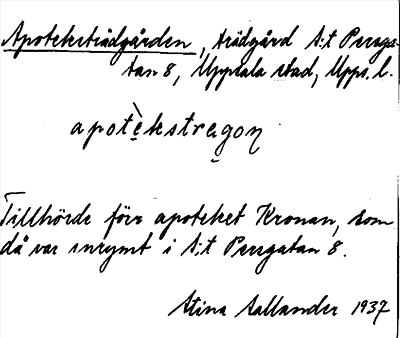 Apoteksträdgården, trädgård S:t Persga-
tan 8, Uppsala stad, Upps. l.
apotèkstragon
Tillhörde förr apoteket Kronan, som
då var inrymt i S:t Persgatan 8.
Stina Sallander 1937